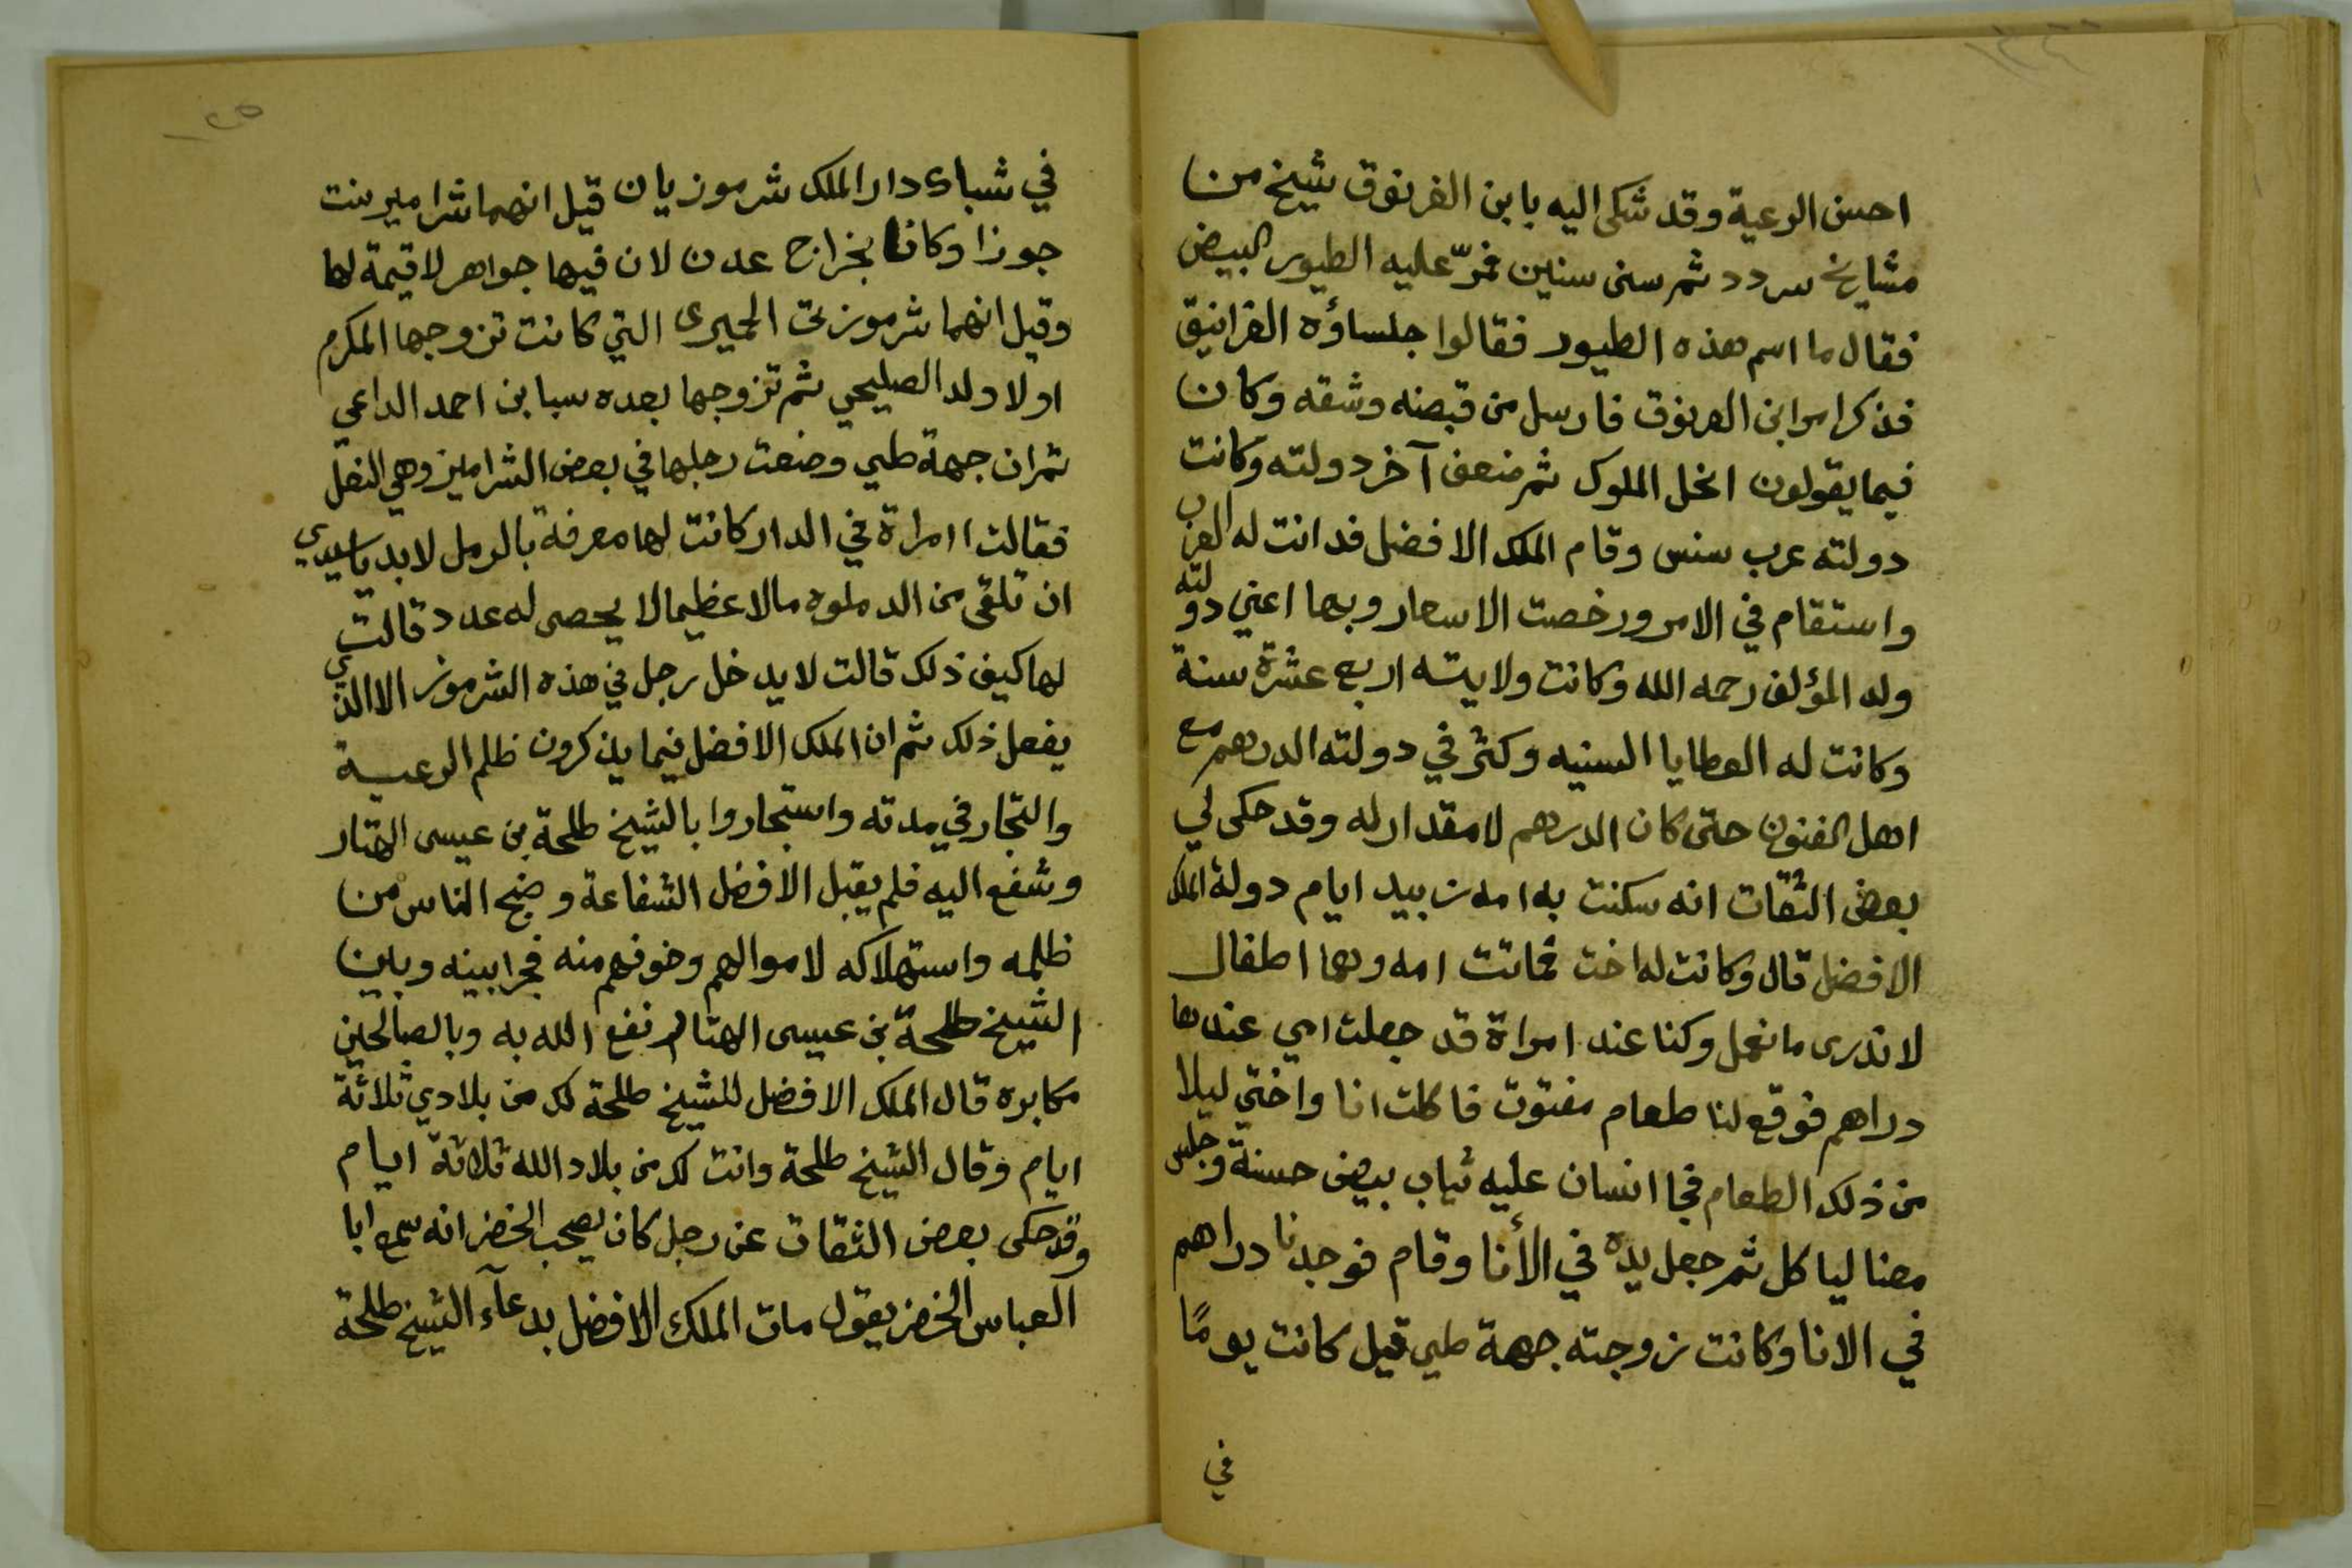 احسن الرعية وقد شكى اليه بابن الغرنوق شيخ من
مشايخ سردد ثم سنى سنين فمرّ عليه الطيور البيض
فقال ما اسم هذه الطيور فقالوا جلساؤه الغرانيق
فذكر امر ابن الغرنوق فارسل من قبضه وشقه وكان
فيما يقولون انخل الملوك ثم ضعف آخر دولته وكانت
دولته عرب سنس وقام الملك الافضل فدانت له العرب
واستقام في الامر ورخصت الاسعار وبها اعني دولته
ولد المؤلف رحمه الله وكانت ولايته اربع عشرة سنة
وكانت له العطايا السنيه وكثر في دولته الدرهم مع
اهل الفنون حتى كان الدرهم لا مقدار له وقد حكى لي
بعض الثقات انه سكنت به امه زبيد ايام دولة الملك
الافضل قال وكانت له اخت فماتت امه وهما اطفال
لا ندرى ما نعمل وكنا عند امراة قد جعلت امي عندها
دراهم فوقع لنا طعام مفتوت فاكلت انا واختي ليلا
من ذلك الطعام فجا انسان عليه ثياب بيض حسنة وجلس
معنا لياكل ثم جعل يده في الأنا وقام فوجدنا دراهم
في الانا وكانت زوجته جهة طي قيل كانت يومًا
في
١٢٥
في شباك دار الملك شرموزيان قيل انهما شراميز بنت
جوزا وكانا بخراج عدن لان فيها جواهر لا قيمة لها
وقيل انهما شرموزتى الحميرى التي كانت تزوجها المكرم
اولا ولد الصليحي ثم تزوجها بعده سبا بن احمد الداعي
ثم ان جهة طي وضعت رجلها في بعض الشراميز وهي النعل
فقالت امراة في الدار كانت لها معرفة بالرمل لابد ياسيدي
ان تلقى من الدملوه مالا عظيما لا يحصى له عدد قالت
لها كيف ذلك قالت لا يدخل رجل في هذه الشرموز الا الذي
يفعل ذلك ثم ان الملك الافضل فيما يذكرون ظلم الرعية
والتجار في مدته واستجاروا بالشيخ طلحة بن عيسى الهتار
وشفع اليه فلم يقبل الافضل الشفاعة وضج الناس من
ظلمه واستهلاكه لاموالهم وخوفهم منه فجرا بينه وبين
الشيخ طلحة بن عيسى الهتار نفع الله به وبالصالحين
مكابره قال الملك الافضل للشيخ طلحة لك من بلادي ثلاثة
ايام وقال الشيخ طلحة وانت لك من بلاد الله ثلاثة ايام
وقد حكى بعض الثقات عن رجل كان يصحب الخضر انه سمع ابا
العباس الخضر يقول مات الملك الافضل بدعآء الشيخ طلحة